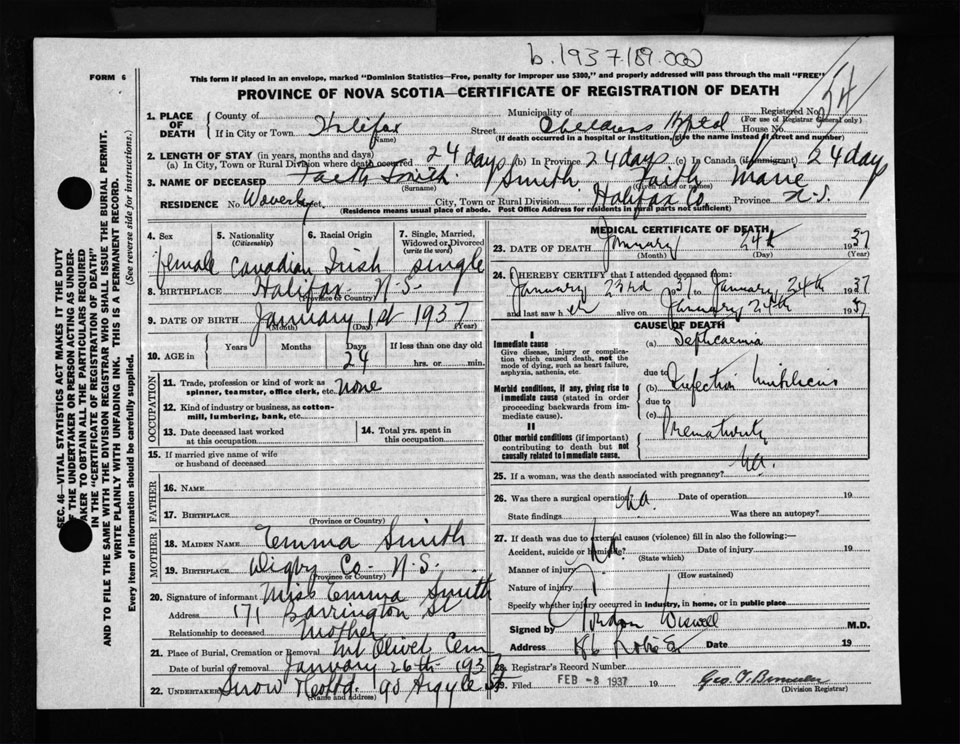 b.1937.189.000
FORM 6
This form if placed in an envelope, marked "Dominion Statistics—Free, penalty for improper use $300," and properly addressed will pass through the mail "FREE"
PROVINCE OF NOVA SCOTIA—CERTIFICATE OF REGISTRATION OF DEATH
54
SEC. 46—VITAL STATISTICS ACT MAKES IT THE DUTY
OF THE UNDERTAKER OR PERSON ACTING AS UNDER-
TAKER TO OBTAIN ALL THE PARTICULARS REQUIRED
IN THE "CERTIFICATE OF REGISTRATION OF DEATH"
AND TO FILE THE SAME WITH THE DIVISION REGISTRAR WHO SHALL ISSUE THE BURIAL PERMIT.
WRITE PLAINLY WITH UNFADING INK. THIS IS A PERMANENT RECORD.
Every item of information should be carefully supplied. (See reverse side for instructions.)
1. PLACE OF DEATH
County of Municipality of Registered No.
(For use of Registrar General only)
If in City or Town Halifax Street Childrens Hospital House No.
(Name) (If death occurred in a hospital or institution, give the name instead of street and number)
2. LENGTH OF STAY (in years, months and days)
(a) In City, Town or Rural Division where death occurred 24 days (b) In Province 24 days (c) In Canada (if immigrant) 24 days
3. NAME OF DECEASED Faith Smith. Smith. Faith Marie
(Surname) (Given name or names)
RESIDENCE No. Waverley Street, City, Town or Rural Division Halifax Co. Province N.S.
(Residence means usual place of abode. Post Office Address for residents in rural parts not sufficient)
4. Sex 5. Nationality (Citizenship) 6. Racial Origin 7. Single, Married, Widowed or Divorced (write the word)
female Canadian Irish single
8. BIRTHPLACE Halifax N.S.
(Province or Country)
9. DATE OF BIRTH January 1st 1937
(Month) (Day) (Year)
10. AGE in Years Months Days If less than one day old
24 hrs. or min.
OCCUPATION
11. Trade, profession or kind of work as spinner, teamster, office clerk, etc. None
12. Kind of industry or business, as cotton-mill, lumbering, bank, etc.
13. Date deceased last worked at this occupation
14. Total yrs. spent in this occupation
15. If married give name of wife or husband of deceased
FATHER
16. NAME
17. BIRTHPLACE
(Province or Country)
MOTHER
18. MAIDEN NAME Emma Smith
19. BIRTHPLACE Digby Co. N.S.
(Province or Country)
20. Signature of informant Miss Emma Smith
Address 171 Barrington St
Relationship to deceased Mother
21. Place of Burial, Cremation or Removal Mt Olivet Cem
Date of burial or removal January 26th 1937
22. UNDERTAKER Snow & Co Ltd. 90 Argyle St
(Name and address)
MEDICAL CERTIFICATE OF DEATH
23. DATE OF DEATH January 24th 1937
(Month) (Day) (Year)
24. I HEREBY CERTIFY that I attended deceased from:
January 23rd 1937 to January 24th 1937
and last saw her alive on January 24th 1937
CAUSE OF DEATH
I
Immediate cause (a) Septicaemia
Give disease, injury or complication which caused death, not the mode of dying, such as heart failure, asphyxia, asthenia, etc.
due to
Morbid conditions, if any, giving rise to immediate cause (stated in order proceeding backwards from immediate cause).
(b) Infection Umbilicus
due to
(c) Prematurity
II
Other morbid conditions (if important) contributing to death but not causally related to immediate cause.
25. If a woman, was the death associated with pregnancy? No.
26. Was there a surgical operation? No. Date of operation 19
State findings Was there an autopsy?
27. If death was due to external causes (violence) fill in also the following:—
Accident, suicide or homicide? No. Date of injury 19
(State which)
Manner of injury
(How sustained)
Nature of injury
Specify whether injury occurred in industry, in home, or in public place
Signed by Gordon Wiswell M.D.
Address 86 Robie St Date 19
28. Registrar's Record Number
29. Filed FEB -8 1937 19
(Division Registrar)